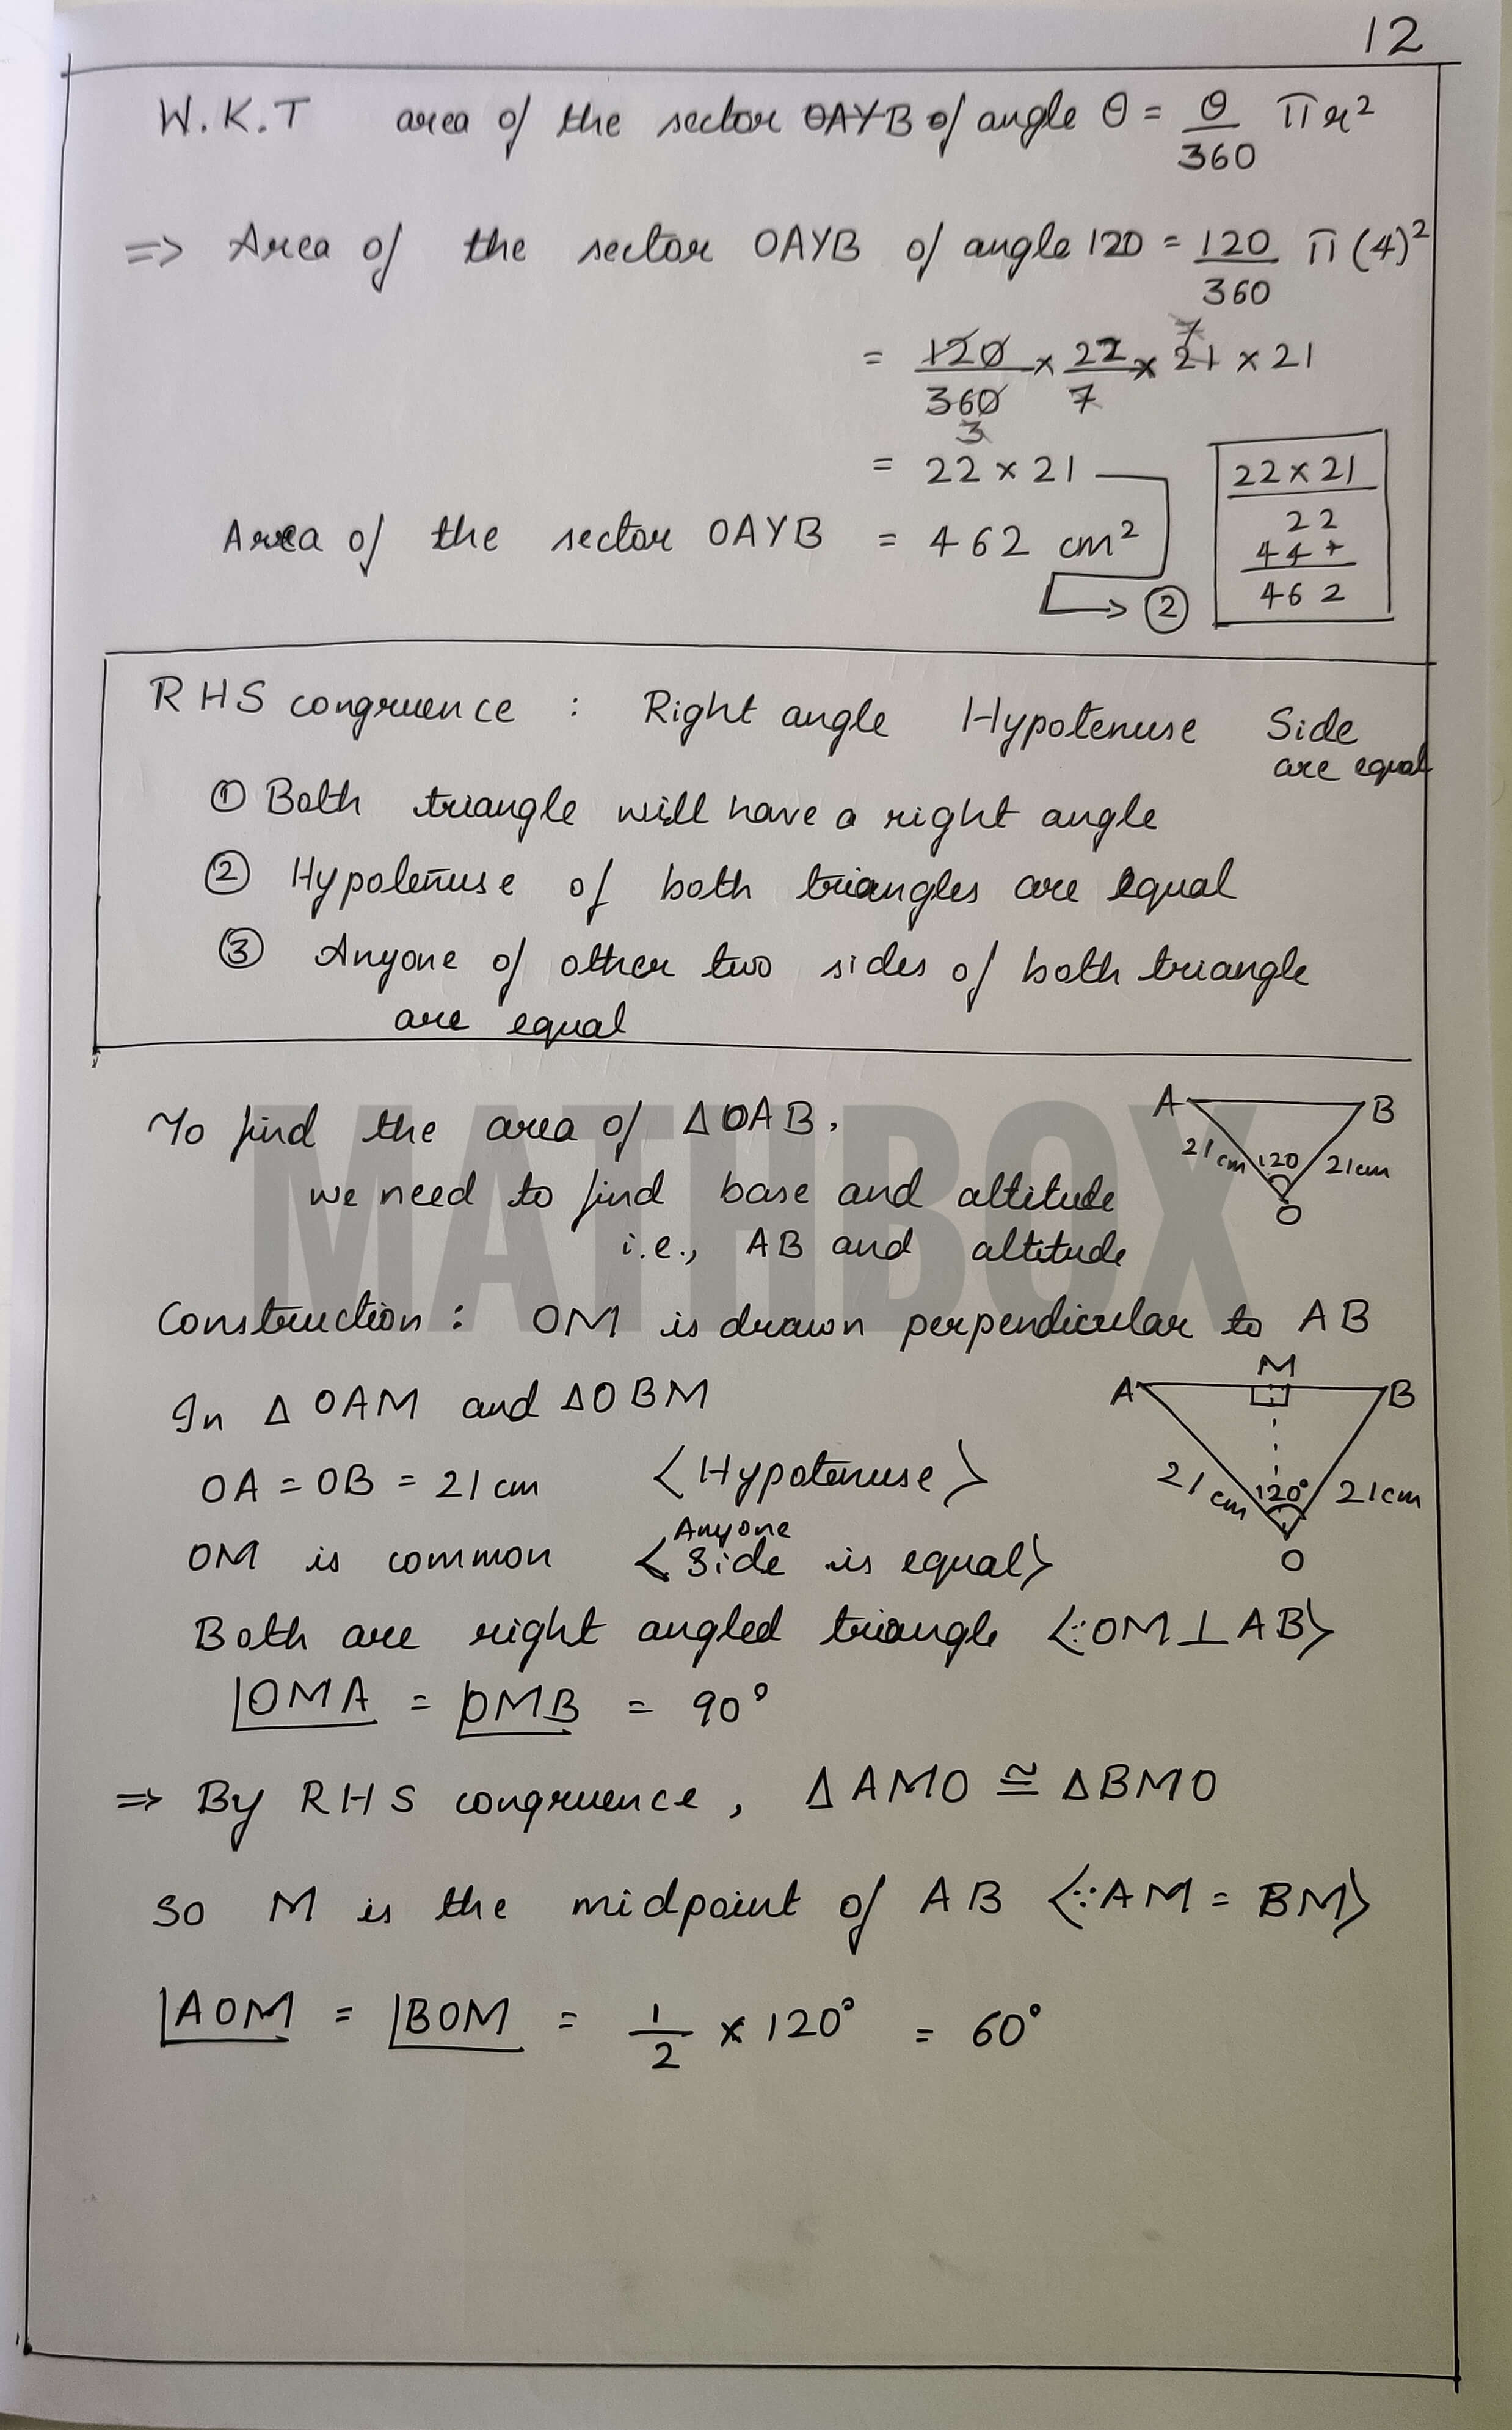 12
W.K.T area of the sector OAYB of angle θ = θ/360 πr²
=> Area of the sector OAYB of angle 120 = 120/360 π(4)²
= 120/360 × 22/7 × 21 × 21
7
3
= 22 × 21
Area of the sector OAYB = 462 cm²
→ ②
22 × 21
22
44+
462
RHS congruence : Right angle Hypotenuse Side
are equal
① Both triangle will have a right angle
② Hypotenuse of both triangles are equal
③ Anyone of other two sides of both triangle
are equal
To find the area of ΔOAB,
we need to find base and altitude
i.e., AB and altitude
A B
21 cm 120 21cm
O
MATHBOX
Construction : OM is drawn perpendicular to AB
In Δ OAM and ΔOBM
OA = OB = 21 cm <Hypotenuse>
OM is common <Anyone Side is equal>
M
A B
21 cm 120° 21cm
O
Both are right angled triangle <∵OM⊥AB>
∠OMA = ∠OMB = 90°
=> By RHS congruence, Δ AMO ≅ ΔBMO
So M is the midpoint of AB <∵AM = BM>
∠AOM = ∠BOM = 1/2 × 120° = 60°